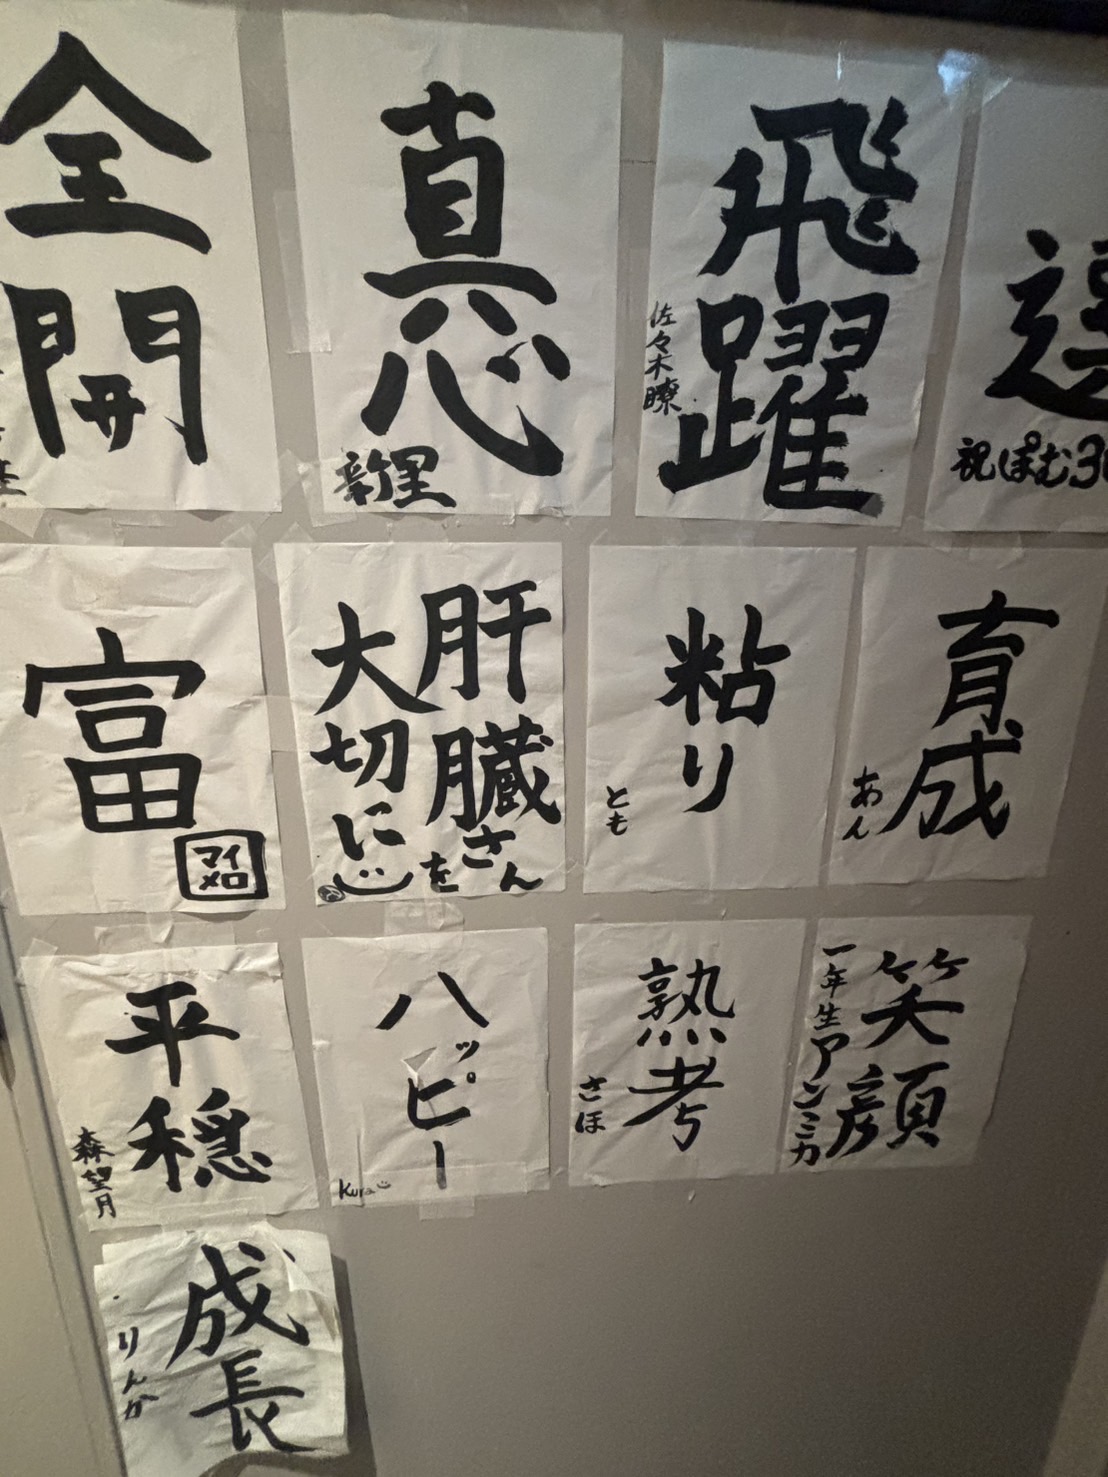 全開
真心
新里
飛躍
佐々木瞭
達
祝ぽむ3
富
マイ
メロ
肝臓さんを
大切に
粘り
とも
育成
あん
平穏
森望月
ハッピー
Kura
熟考
さほ
笑顔
一年生アンミカ
成長
りんか